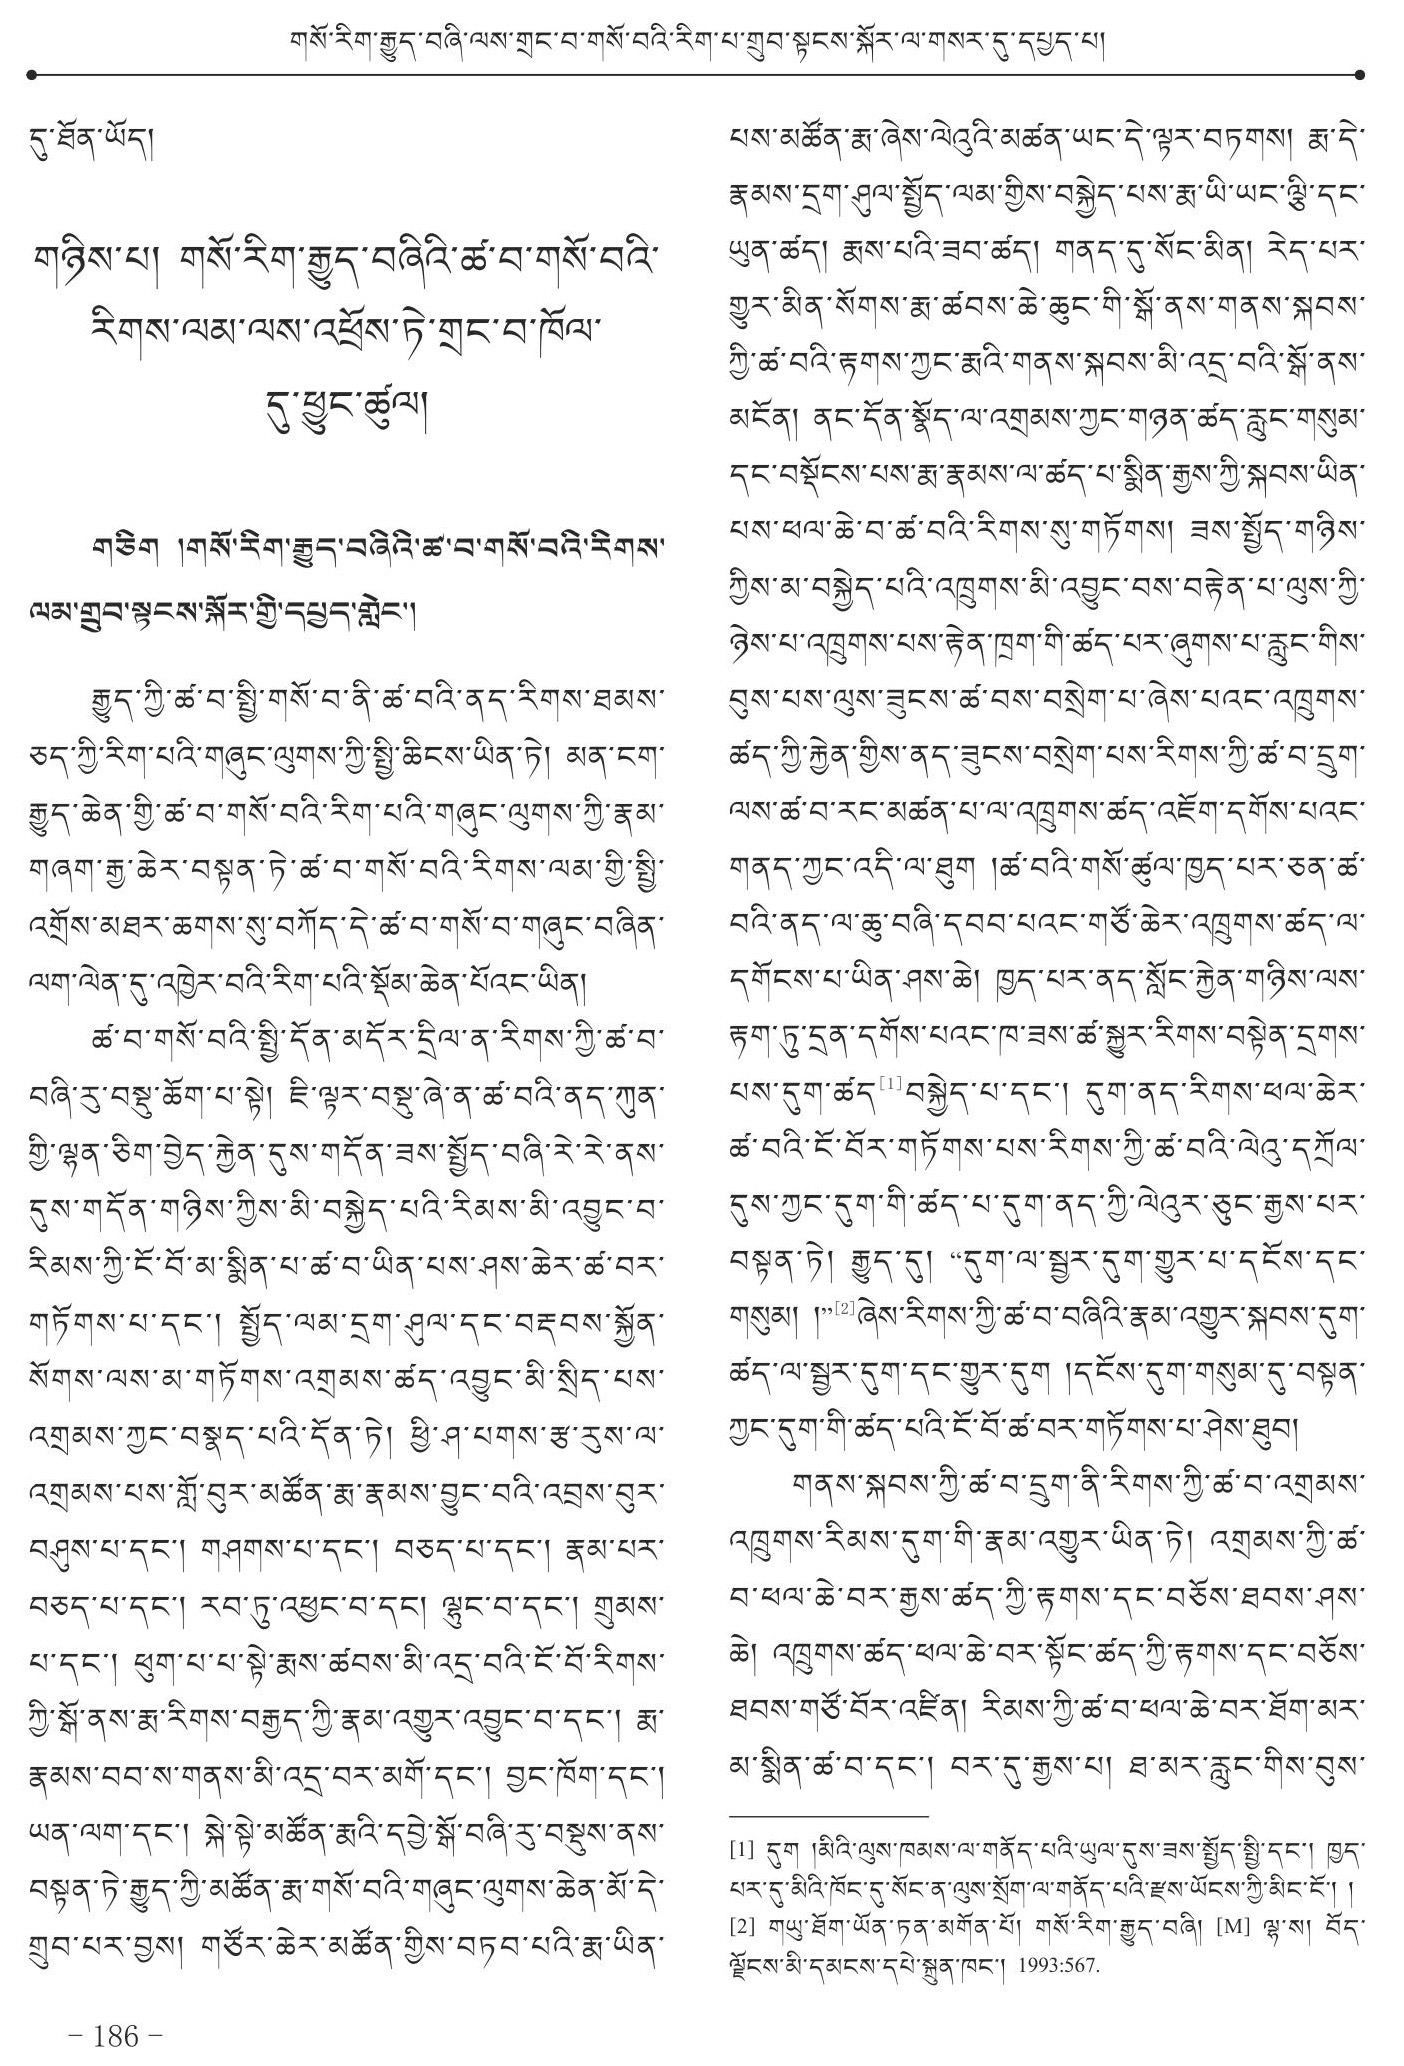 གསོ་རིག་རྒྱུད་བཞི་ལས་གྲང་བ་གསོ་བའི་རིག་པ་གྲུབ་སྟངས་སྐོར་ལ་གསར་དུ་དཔྱད་པ།
དུ་ཐོན་ཡོད།
གཉིས་པ། གསོ་རིག་རྒྱུད་བཞིའི་ཚ་བ་གསོ་བའི་
རིགས་ལམ་ལས་འཕྲོས་ཏེ་གྲང་བ་ཁོལ་
དུ་ཕྱུང་ཚུལ།
གཅིག །གསོ་རིག་རྒྱུད་བཞིའི་ཚ་བ་གསོ་བའི་རིགས་
ལམ་གྲུབ་སྟངས་སྐོར་གྱི་དཔྱད་གླེང་།
རྒྱུད་ཀྱི་ཚ་བ་སྤྱི་གསོ་བ་ནི་ཚ་བའི་ནད་རིགས་ཐམས་
ཅད་ཀྱི་རིག་པའི་གཞུང་ལུགས་ཀྱི་སྤྱི་ཆིངས་ཡིན་ཏེ། མན་ངག་
རྒྱུད་ཆེན་གྱི་ཚ་བ་གསོ་བའི་རིག་པའི་གཞུང་ལུགས་ཀྱི་རྣམ་
གཞག་རྒྱ་ཆེར་བསྟན་ཏེ་ཚ་བ་གསོ་བའི་རིགས་ལམ་གྱི་སྤྱི་
འགྲོས་མཐར་ཆགས་སུ་བཀོད་དེ་ཚ་བ་གསོ་བ་གཞུང་བཞིན་
ལག་ལེན་དུ་འཁྱེར་བའི་རིག་པའི་སྡོམ་ཆེན་པོའང་ཡིན།
ཚ་བ་གསོ་བའི་སྤྱི་དོན་མདོར་དྲིལ་ན་རིགས་ཀྱི་ཚ་བ་
བཞི་རུ་བསྡུ་ཆོག་པ་སྟེ། ཇི་ལྟར་བསྡུ་ཞེ་ན་ཚ་བའི་ནད་ཀུན་
གྱི་ལྷན་ཅིག་བྱེད་རྐྱེན་དུས་གདོན་ཟས་སྤྱོད་བཞི་རེ་རེ་ནས་
དུས་གདོན་གཉིས་ཀྱིས་མི་བསྐྱེད་པའི་རིམས་མི་འབྱུང་བ་
རིམས་ཀྱི་ངོ་བོ་མ་སྨིན་པ་ཚ་བ་ཡིན་པས་ཤས་ཆེར་ཚ་བར་
གཏོགས་པ་དང་། སྤྱོད་ལམ་དྲག་ཤུལ་དང་བརྡབས་སྐྱོན་
སོགས་ལས་མ་གཏོགས་འགྲམས་ཚད་འབྱུང་མི་སྲིད་པས་
འགྲམས་ཀྱང་བསྣད་པའི་དོན་ཏེ། ཕྱི་ཤ་པགས་རྩ་རུས་ལ་
འགྲམས་པས་གློ་བུར་མཚོན་རྨ་རྣམས་བྱུང་བའི་འབྲས་བུར་
བཤུས་པ་དང་། གཤགས་པ་དང་། བཅད་པ་དང་། རྣམ་པར་
བཅད་པ་དང་། རབ་ཏུ་འཕྱང་བ་དང། ལྷུང་བ་དང་། གྲུམས་
པ་དང་། ཕུག་པ་པ་སྟེ་རྨས་ཚབས་མི་འདྲ་བའི་ངོ་བོ་རིགས་
ཀྱི་སྒོ་ནས་རྨ་རིགས་བརྒྱད་ཀྱི་རྣམ་འགྱུར་འབྱུང་བ་དང་། རྨ་
རྣམས་བབ་ས་གནས་མི་འདྲ་བར་མགོ་དང་། བྱང་ཁོག་དང་།
ཡན་ལག་དང་། སྐེ་སྟེ་མཚོན་རྨའི་དབྱེ་སྒོ་བཞི་རུ་བསྡུས་ནས་
བསྟན་ཏེ་རྒྱུད་ཀྱི་མཚོན་རྨ་གསོ་བའི་གཞུང་ལུགས་ཆེན་མོ་དེ་
གྲུབ་པར་བྱས། གཙོར་ཆེར་མཚོན་གྱིས་བཏབ་པའི་རྨ་ཡིན་
པས་མཚོན་རྨ་ཞེས་ལེའུའི་མཚན་ཡང་དེ་ལྟར་བཏགས། རྨ་དེ་
རྣམས་དྲག་ཤུལ་སྤྱོད་ལམ་གྱིས་བསྐྱེད་པས་རྨ་ཡི་ཡང་ལྕི་དང་
ཡུན་ཚད། རྨས་པའི་ཟབ་ཚད། གནད་དུ་སོང་མིན། རེད་པར་
གྱུར་མིན་སོགས་རྨ་ཚབས་ཆེ་ཆུང་གི་སྒོ་ནས་གནས་སྐབས་
ཀྱི་ཚ་བའི་རྟགས་ཀྱང་རྨའི་གནས་སྐབས་མི་འདྲ་བའི་སྒོ་ནས་
མངོན། ནང་དོན་སྣོད་ལ་འགྲམས་ཀྱང་གཉན་ཚད་རླུང་གསུམ་
དང་བསྡོངས་པས་རྨ་རྣམས་ལ་ཚད་པ་སྨིན་རྒྱས་ཀྱི་སྐབས་ཡིན་
པས་ཕལ་ཆེ་བ་ཚ་བའི་རིགས་སུ་གཏོགས། ཟས་སྤྱོད་གཉིས་
ཀྱིས་མ་བསྐྱེད་པའི་འཁྲུགས་མི་འབྱུང་བས་བརྟེན་པ་ལུས་ཀྱི་
ཉེས་པ་འཁྲུགས་པས་རྟེན་ཁྲག་གི་ཚད་པར་ཞུགས་པ་རླུང་གིས་
བུས་པས་ལུས་ཟུངས་ཚ་བས་བསྲེག་པ་ཞེས་པའང་འཁྲུགས་
ཚད་ཀྱི་རྐྱེན་གྱིས་ནད་ཟུངས་བསྲེག་པས་རིགས་ཀྱི་ཚ་བ་དྲུག་
ལས་ཚ་བ་རང་མཚན་པ་ལ་འཁྲུགས་ཚད་འཇོག་དགོས་པའང་
གནད་ཀྱང་འདི་ལ་ཐུག །ཚ་བའི་གསོ་ཚུལ་ཁྱད་པར་ཅན་ཚ་
བའི་ནད་ལ་ཆུ་བཞི་དབབ་པའང་གཙོ་ཆེར་འཁྲུགས་ཚད་ལ་
དགོངས་པ་ཡིན་ཤས་ཆེ། ཁྱད་པར་ནད་སློང་རྐྱེན་གཉིས་ལས་
རྟག་ཏུ་དྲན་དགོས་པའང་ཁ་ཟས་ཚ་སྐྱུར་རིགས་བསྟེན་དྲགས་
པས་དུག་ཚད[1]བསྐྱེད་པ་དང་། དུག་ནད་རིགས་ཕལ་ཆེར་
ཚ་བའི་ངོ་བོར་གཏོགས་པས་རིགས་ཀྱི་ཚ་བའི་ལེའུ་དཀྲོལ་
དུས་ཀྱང་དུག་གི་ཚད་པ་དུག་ནད་ཀྱི་ལེའུར་ཅུང་རྒྱས་པར་
བསྟན་ཏེ། རྒྱུད་དུ། “དུག་ལ་སྦྱར་དུག་གྱུར་པ་དངོས་དང་
གསུམ། །”[2]ཞེས་རིགས་ཀྱི་ཚ་བ་བཞིའི་རྣམ་འགྱུར་སྐབས་དུག་
ཚད་ལ་སྦྱར་དུག་དང་གྱུར་དུག །དངོས་དུག་གསུམ་དུ་བསྟན་
ཀྱང་དུག་གི་ཚད་པའི་ངོ་བོ་ཚ་བར་གཏོགས་པ་ཤེས་ཐུབ།
གནས་སྐབས་ཀྱི་ཚ་བ་དྲུག་ནི་རིགས་ཀྱི་ཚ་བ་འགྲམས་
འཁྲུགས་རིམས་དུག་གི་རྣམ་འགྱུར་ཡིན་ཏེ། འགྲམས་ཀྱི་ཚ་
བ་ཕལ་ཆེ་བར་རྒྱས་ཚད་ཀྱི་རྟགས་དང་བཅོས་ཐབས་ཤས་
ཆེ། འཁྲུགས་ཚད་ཕལ་ཆེ་བར་སྟོང་ཚད་ཀྱི་རྟགས་དང་བཅོས་
ཐབས་གཙོ་བོར་འཛིན། རིམས་ཀྱི་ཚ་བ་ཕལ་ཆེ་བར་ཐོག་མར་
མ་སྨིན་ཚ་བ་དང་། བར་དུ་རྒྱས་པ། ཐ་མར་རླུང་གིས་བུས་
[1] དུག །མིའི་ལུས་ཁམས་ལ་གནོད་པའི་ཡུལ་དུས་ཟས་སྤྱོད་སྤྱི་དང་། ཁྱད་
པར་དུ་མིའི་ཁོང་དུ་སོང་ན་ལུས་སྲོག་ལ་གནོད་པའི་རྫས་ཡོངས་ཀྱི་མིང་ངོ་། །
[2] གཡུ་ཐོག་ཡོན་ཏན་མགོན་པོ། གསོ་རིག་རྒྱུད་བཞི། [M] ལྷ་ས། བོད་
ལྗོངས་མི་དམངས་དཔེ་སྐྲུན་ཁང་། 1993:567.
– 186 –